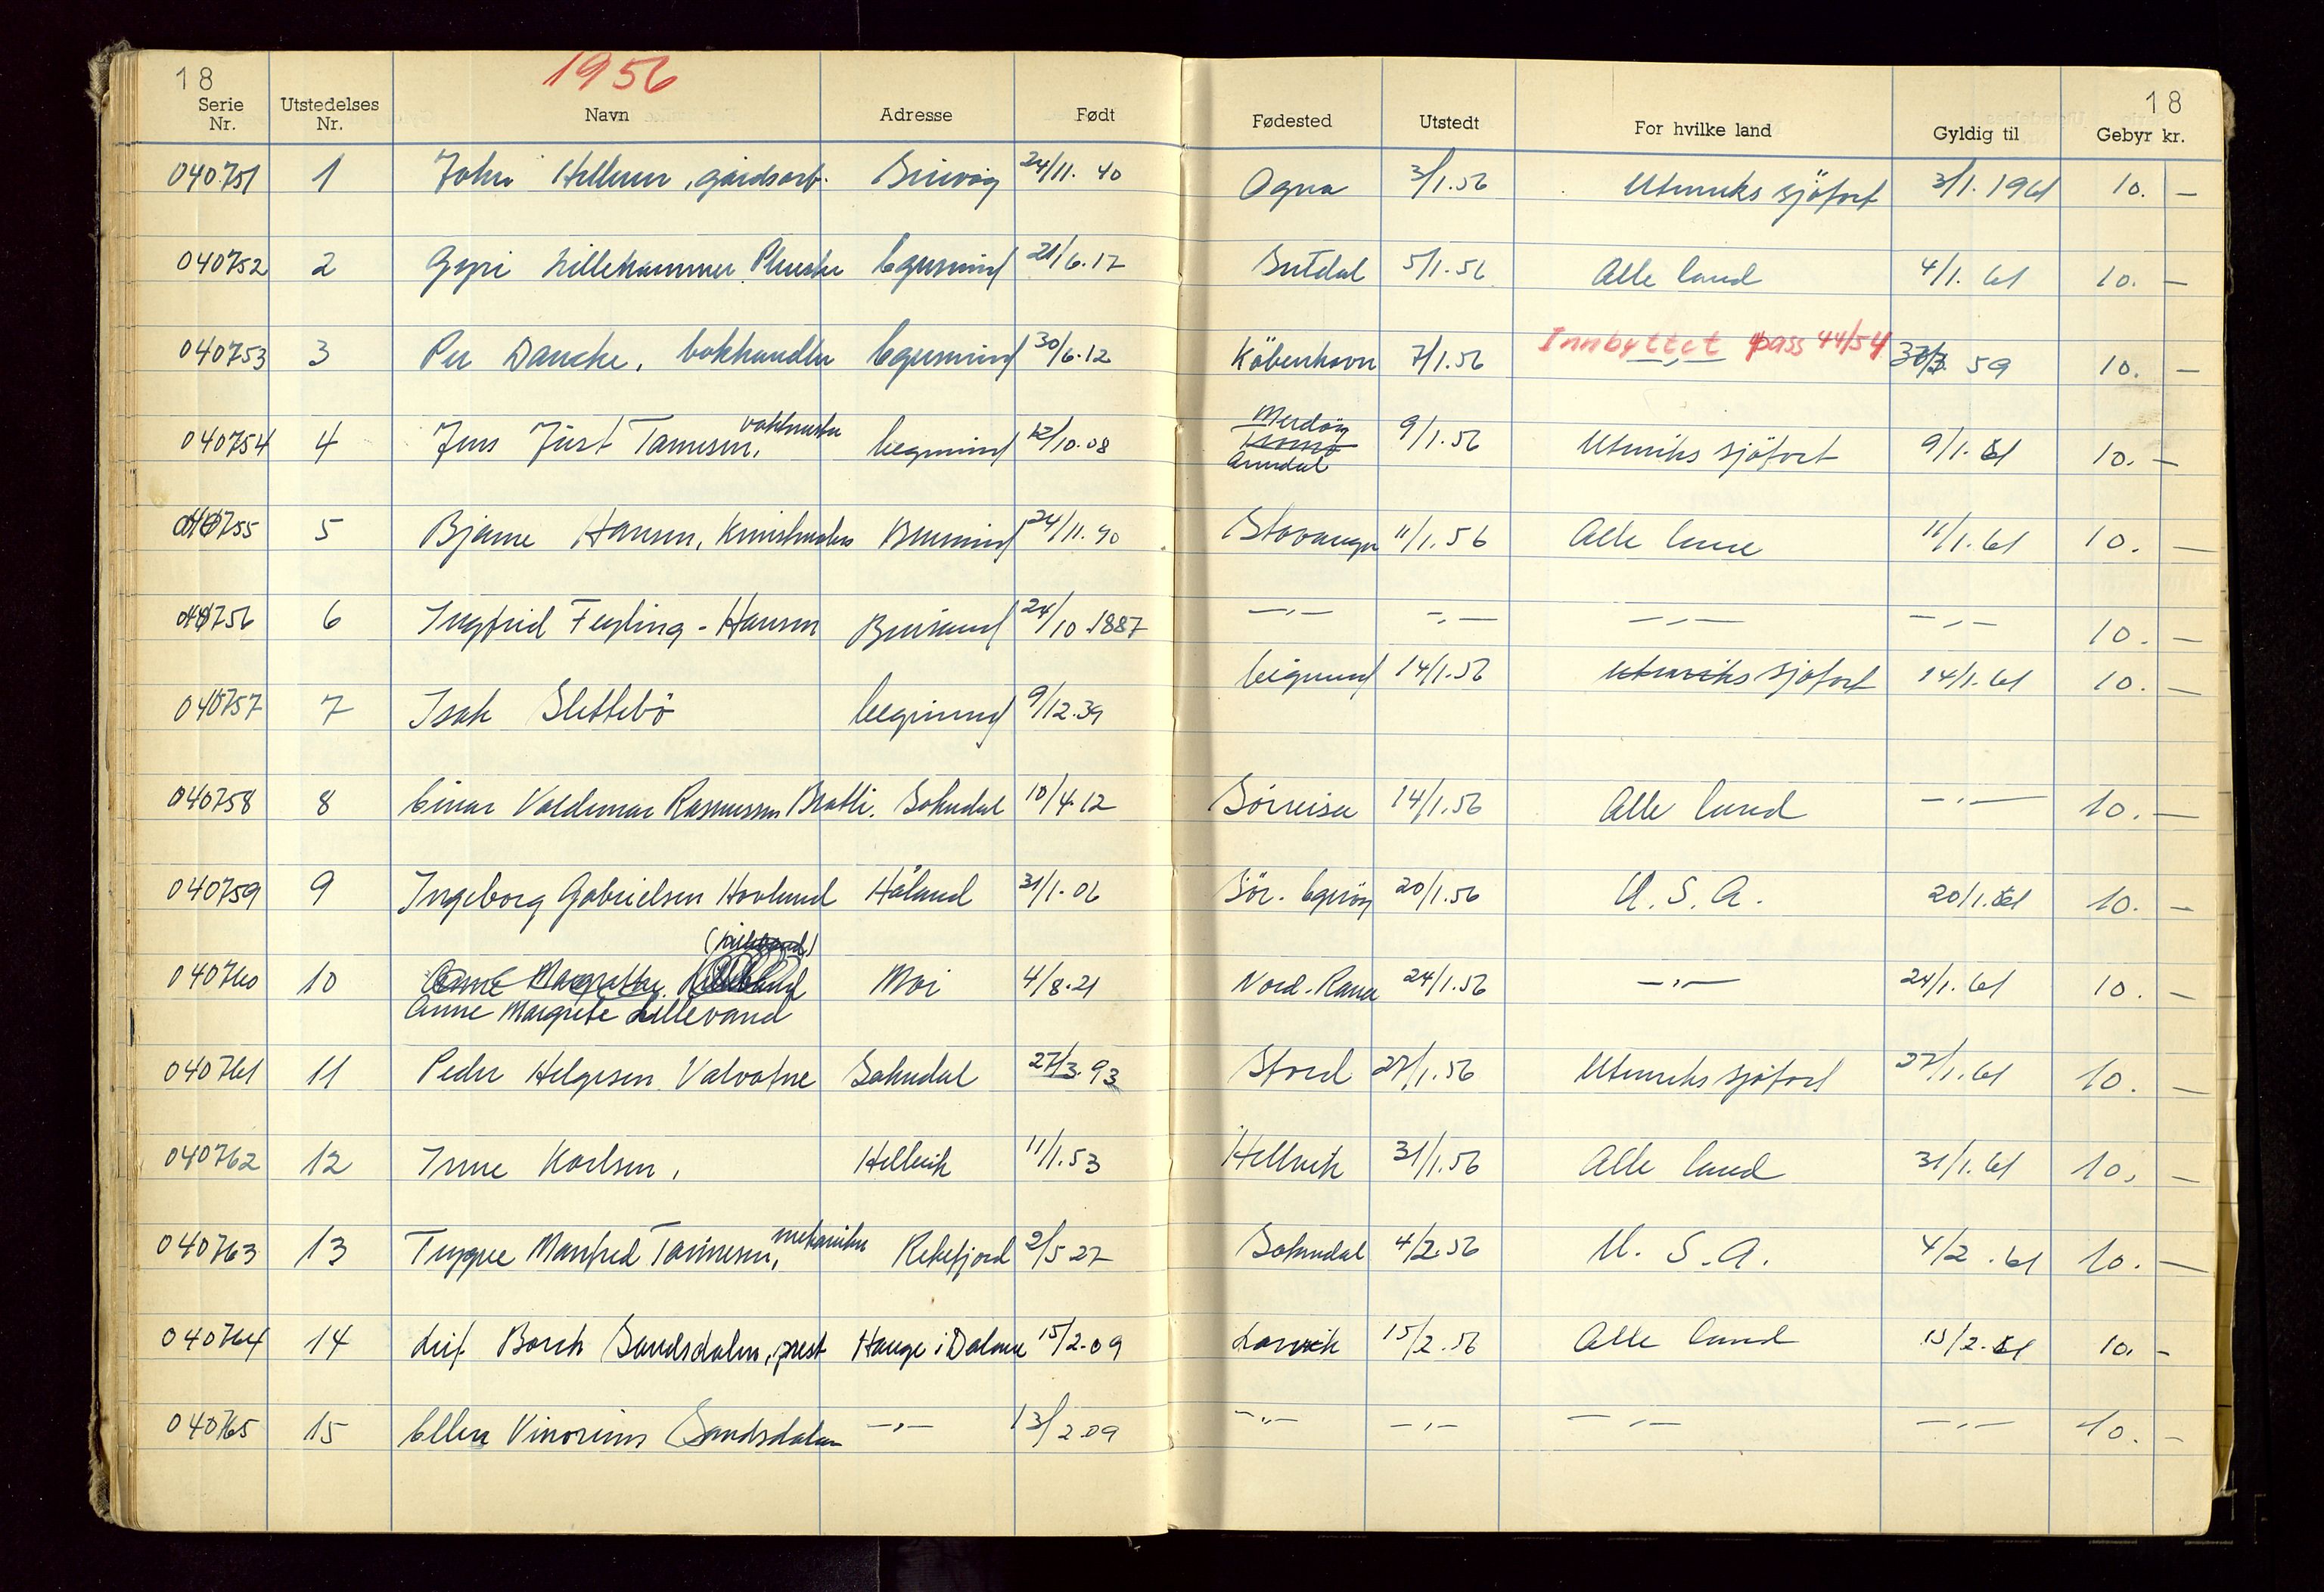 18
1956
18
Serie Nr. Utstedelses Nr. Navn Adresse Født Fødested Utstedt For hvilke land Gyldig til Gebyr kr.
040751 1 John gårdsarb. 24/11. 40 Ogna 3/1.56 Utenriks sjöfart 3/1. 1961 10. —
040752 2 Gyri Lillehammer Egersund 21/6.17 5/1.56 Alle land 4/1. 61 10. —
040753 3 Per Dancke, bokhandler Egersund 30/6.12 Köbenhavn 7/1.56 Innbyttet pass 44/54 —,— 59 10. —
040754 4 Jens Just Tannesen, Eegersund 12/10.08 Merdöy Arendal 9/1.56 Utenriks sjöfart 9/1.61 10. —
040755 5 Bjarne Hansen, 24/11.90 Stavanger 11/1.56 Alle land 11/1.61 10. —
040756 6 Ingfrid Feyling-Hansen 24/10.1887 —,— —,— —,— —,— 10. —
040757 7 Isak Slettebö Eegersund 9/12.39 Eigersund 14/1.56 Utenriks sjöfart 14/1.61 10. —
040758 8 Einar Valdemar Rasmussen Bratli. Sokndal 10/4.12 Sörreisa 14/1.56 Alle land —,— 10. —
040759 9 Ingeborg Gabrielsen Hovland Håland 31/1.06 Sör. Egeröy 20/1.56 U.S.A. 20/1.61 10. —
040760 10 Anne Margrethe Moi 4/8.21 Nord-Rana 24/1.56 —,— 24/1.61 10. —
Anne Margrete Lillevand
040761 11 Peder Helgesen Valvatne Sokndal 27/3.93 Stord 27/1.56 Utenriks sjöfart 27/1.61 10. —
040762 12 Irene Karlsen, Hellvik 11/1.53 Hellvik 31/1.56 Alle land 31/1.61 10. —
040763 13 Trygve Manfred Tønnesen, mekaniker Rekefjord 2/5 27 Sokndal 4/2.56 U.S.A. 4/2.61 10. —
040764 14 Leif Borch Sandsdalen, prest Hauge i Dalane 15/2.09 Larvik 15/2.56 Alle land 15/2.61 10. —
040765 15 Ellen Sandsdalen —,— 13/2.09 —„— —,— —,— —,— 10. —